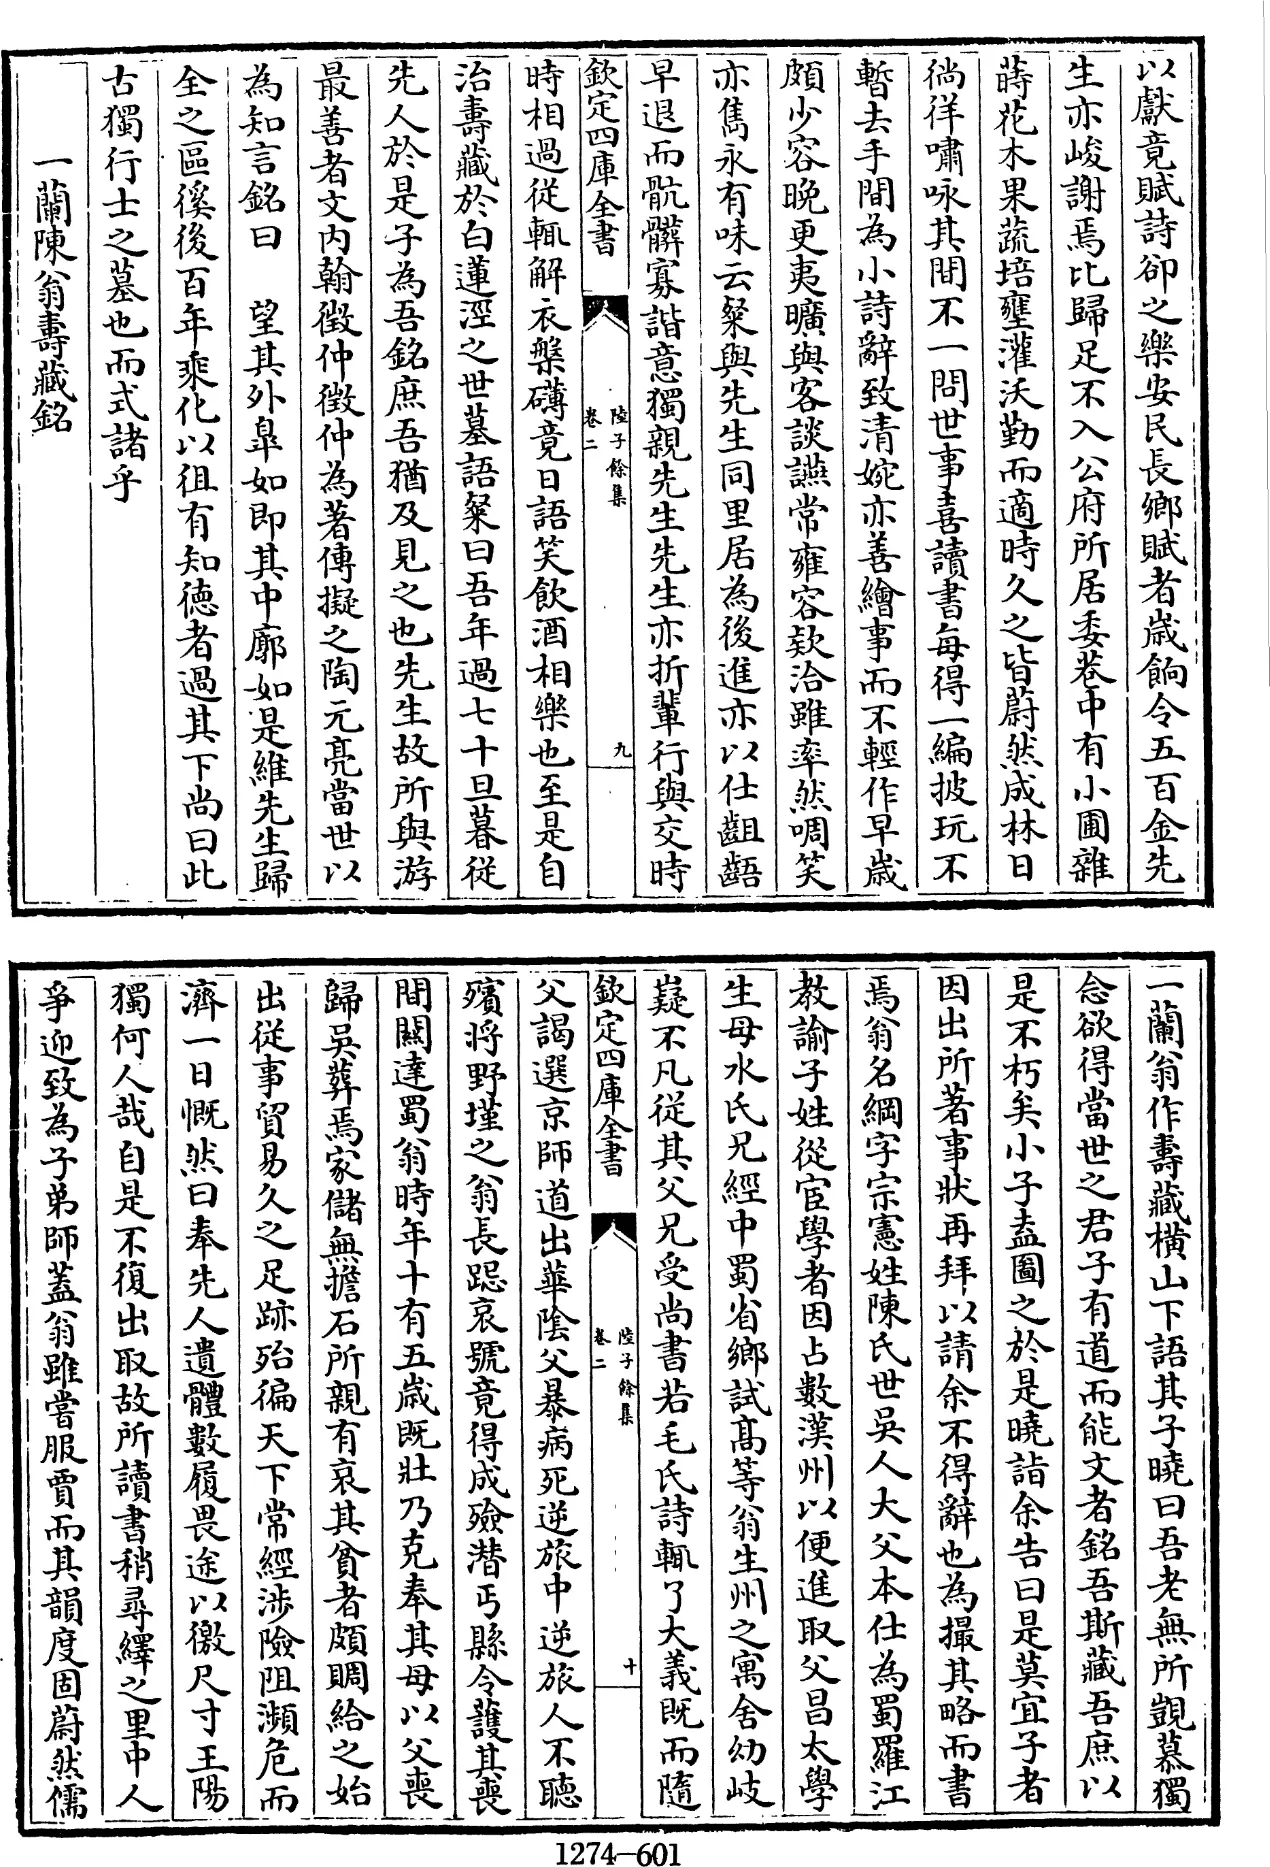 以獻竟賦詩卻之樂安民長鄉賦者歲餉令五百金先
生亦峻謝焉比歸足不入公府所居委巷中有小圃雜
蒔花木果蔬培壅灌沃勤而適時久之皆蔚然成林日
徜徉嘯咏其間不一問世事喜讀書每得一編披玩不
暫去手間為小詩辭致清婉亦善繪事而不輕作早歲
頗少容晚更夷曠與客談讌常雍容欵洽雖率然啁笑
亦雋永有味云粲與先生同里居為後進亦以仕齟齬
早退而骯髒寡諧意獨親先生先生亦折輩行與交時
欽定四庫全書
陸子餘集
卷二
九
時相過從輒解衣槃礴竟日語笑飲酒相樂也至是自
治壽藏於白蓮涇之世墓語粲曰吾年過七十旦暮從
先人於是子為吾銘庶吾猶及見之也先生故所與游
最善者文内翰徵仲徵仲為著傳擬之陶元亮當世以
為知言銘曰　望其外臯如即其中廓如是維先生歸
全之區徯後百年乘化以徂有知德者過其下尚曰此
古獨行士之墓也而式諸乎
一蘭陳翁壽藏銘
一蘭翁作壽藏橫山下語其子曉曰吾老無所覬慕獨
念欲得當世之君子有道而能文者銘吾斯藏吾庶以
是不朽矣小子盍圖之於是曉詣余告曰是莫宜子者
因出所著事狀再拜以請余不得辭也為撮其略而書
焉翁名綱字宗憲姓陳氏世吳人大父本仕為蜀羅江
教諭子姓從宦學者因占數漢州以便進取父昌太學
生母水氏兄經中蜀省鄉試髙等翁生州之寓舍幼岐
嶷不凡從其父兄受尚書若毛氏詩輒了大義既而隨
欽定四庫全書
陸子餘集
卷二
十
父謁選京師道出華陰父暴病死逆旅中逆旅人不聽
殯將野墐之翁長跽哀號竟得成殮潛丐縣令護其喪
間關達蜀翁時年十有五歲既壯乃克奉其母以父喪
歸吳葬焉家儲無擔石所親有哀其貧者頗賙給之始
出從事貿易久之足跡殆徧天下常經涉險阻瀕危而
濟一日慨然曰奉先人遺體數履畏途以徼尺寸王陽
獨何人哉自是不復出取故所讀書稍尋繹之里中人
爭迎致為子弟師蓋翁雖嘗服賈而其韻度固蔚然儒
1274-601